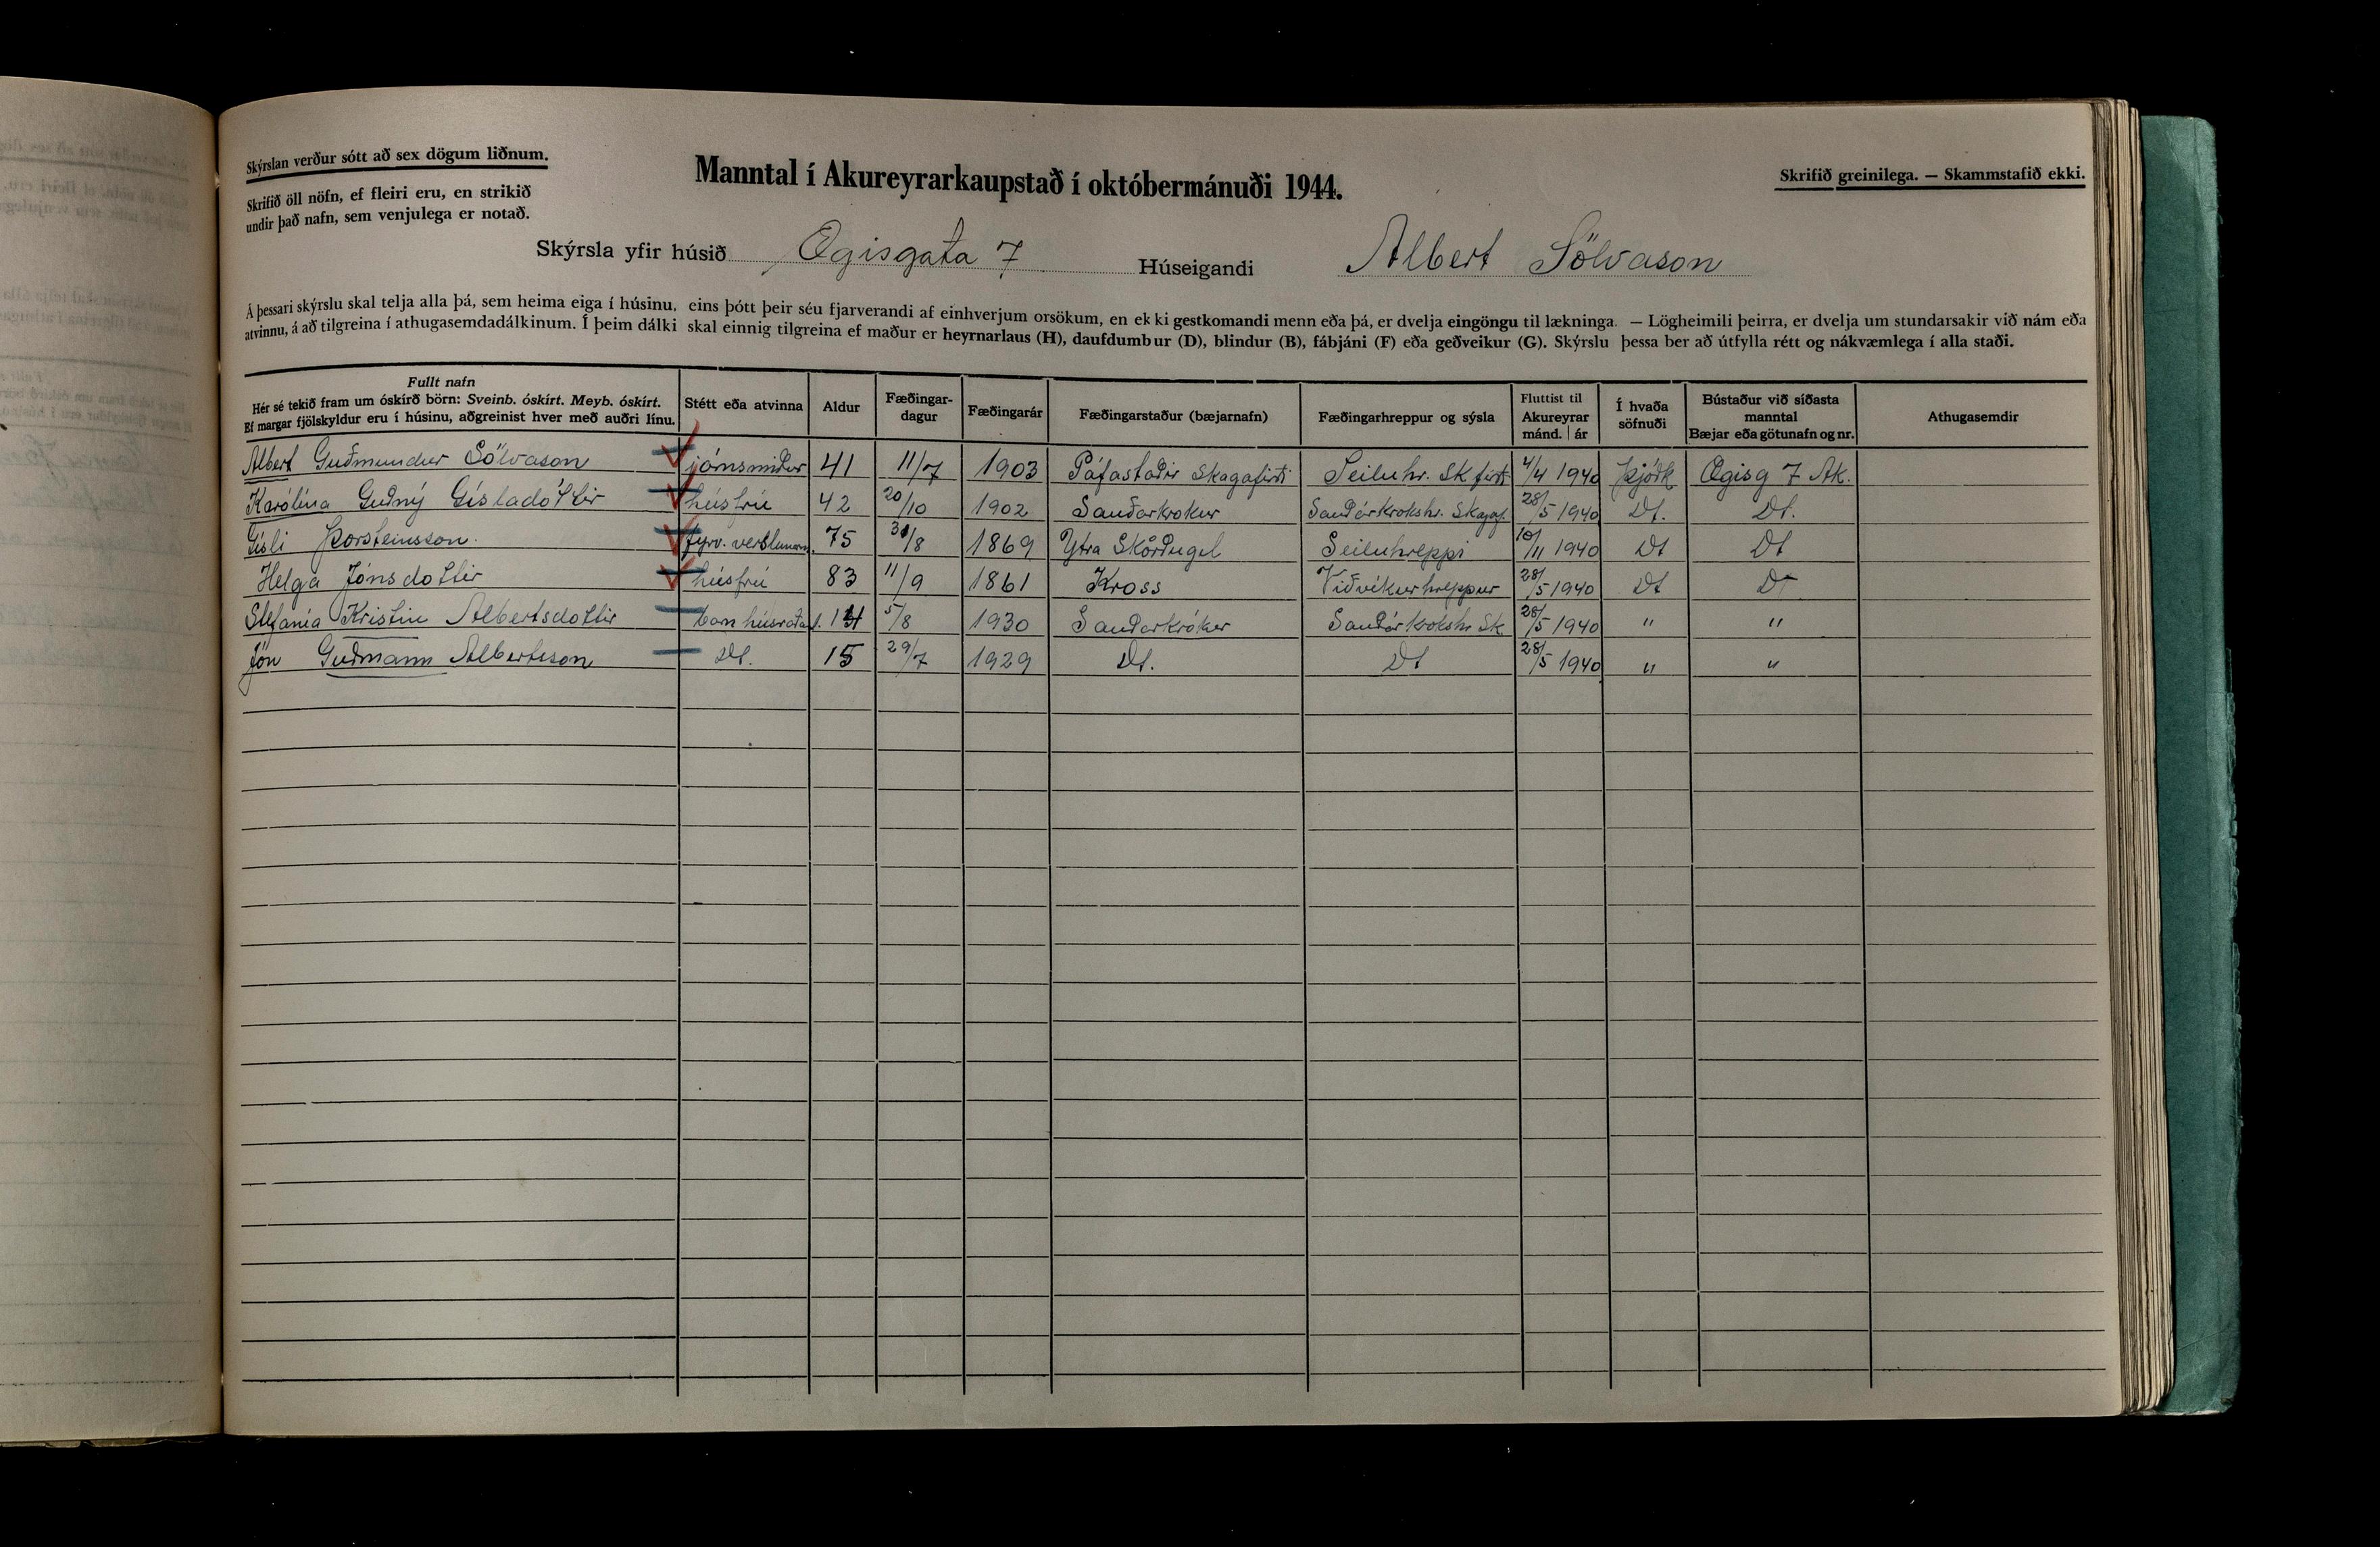 Skýrslan verður sótt að sex dögum liðnum.
Skrifið öll nöfn, ef fleiri eru, en strikið
undir það nafn, sem venjulega er notað.
Manntal í Akureyrarkaupstað í októbermánuði 1944.
Skrifið greinilega. — Skammstafið ekki.
Skýrsla yfir húsið Ægisgata 7 Húseigandi Albert Sölvason
Á þessari skýrslu skal telja alla þá, sem heima eiga í húsinu, eins þótt þeir séu fjarverandi af einhverjum orsökum, en ekki gestkomandi menn eða þá, er dvelja eingöngu til lækninga. — Lögheimili þeirra, er dvelja um stundarsakir við nám eða
atvinnu, á að tilgreina í athugasemdadálkinum. Í þeim dálki skal einnig tilgreina ef maður er heyrnarlaus (H), daufdumbur (D), blindur (B), fábjáni (F) eða geðveikur (G). Skýrslu þessa ber að útfylla rétt og nákvæmlega í alla staði.
Fullt nafn
Hér sé tekið fram um óskírð börn: Sveinb. óskírt. Meyb. óskírt.
Ef margar fjölskyldur eru í húsinu, aðgreinist hver með auðri línu.
Stétt eða atvinna
Aldur
Fæðingar-
dagur
Fæðingarár
Fæðingarstaður (bæjarnafn)
Fæðingarhreppur og sýsla
Fluttist til
Akureyrar
mánd. | ár
Í hvaða
söfnuði
Bústaður við síðasta
manntal
Bæjar eða götunafn og nr.
Athugasemdir
Albert Guðmundur Sölvason járnsmiður 41 11/7 1903 Páfastaðir Skagafirði Seiluhr. Sk firði 4/4 1940 Þjóðk Ægisg 7 Ak.
Karólína Guðný Gísladóttir húsfrú 42 20/10 1902 Sauðarkrokur Sauðárkrokshr. Skagaf. 28/5 1940 Dt. Dt.
Gísli Þorsteinsson. fyrv. verslunarm. 75 /8 1869 Ytra Skörðugil Seiluhreppi 10/11 1940 Dt Dt
Helga Jónsdottir húsfrú 83 11/9 1861 Kross Viðvíkurhreppur 28/5 1940 Dt Dt
Stefanía Kristín Albertsdottir barn húsráða. 14 5/8 1930 Sauðarkrókur Sauðárkrokshr Sk 28/5 1940 " "
Jón Guðmann Albertsson Dt. 15 29/7 1929 Dt. Dt 28/5 1940 " "